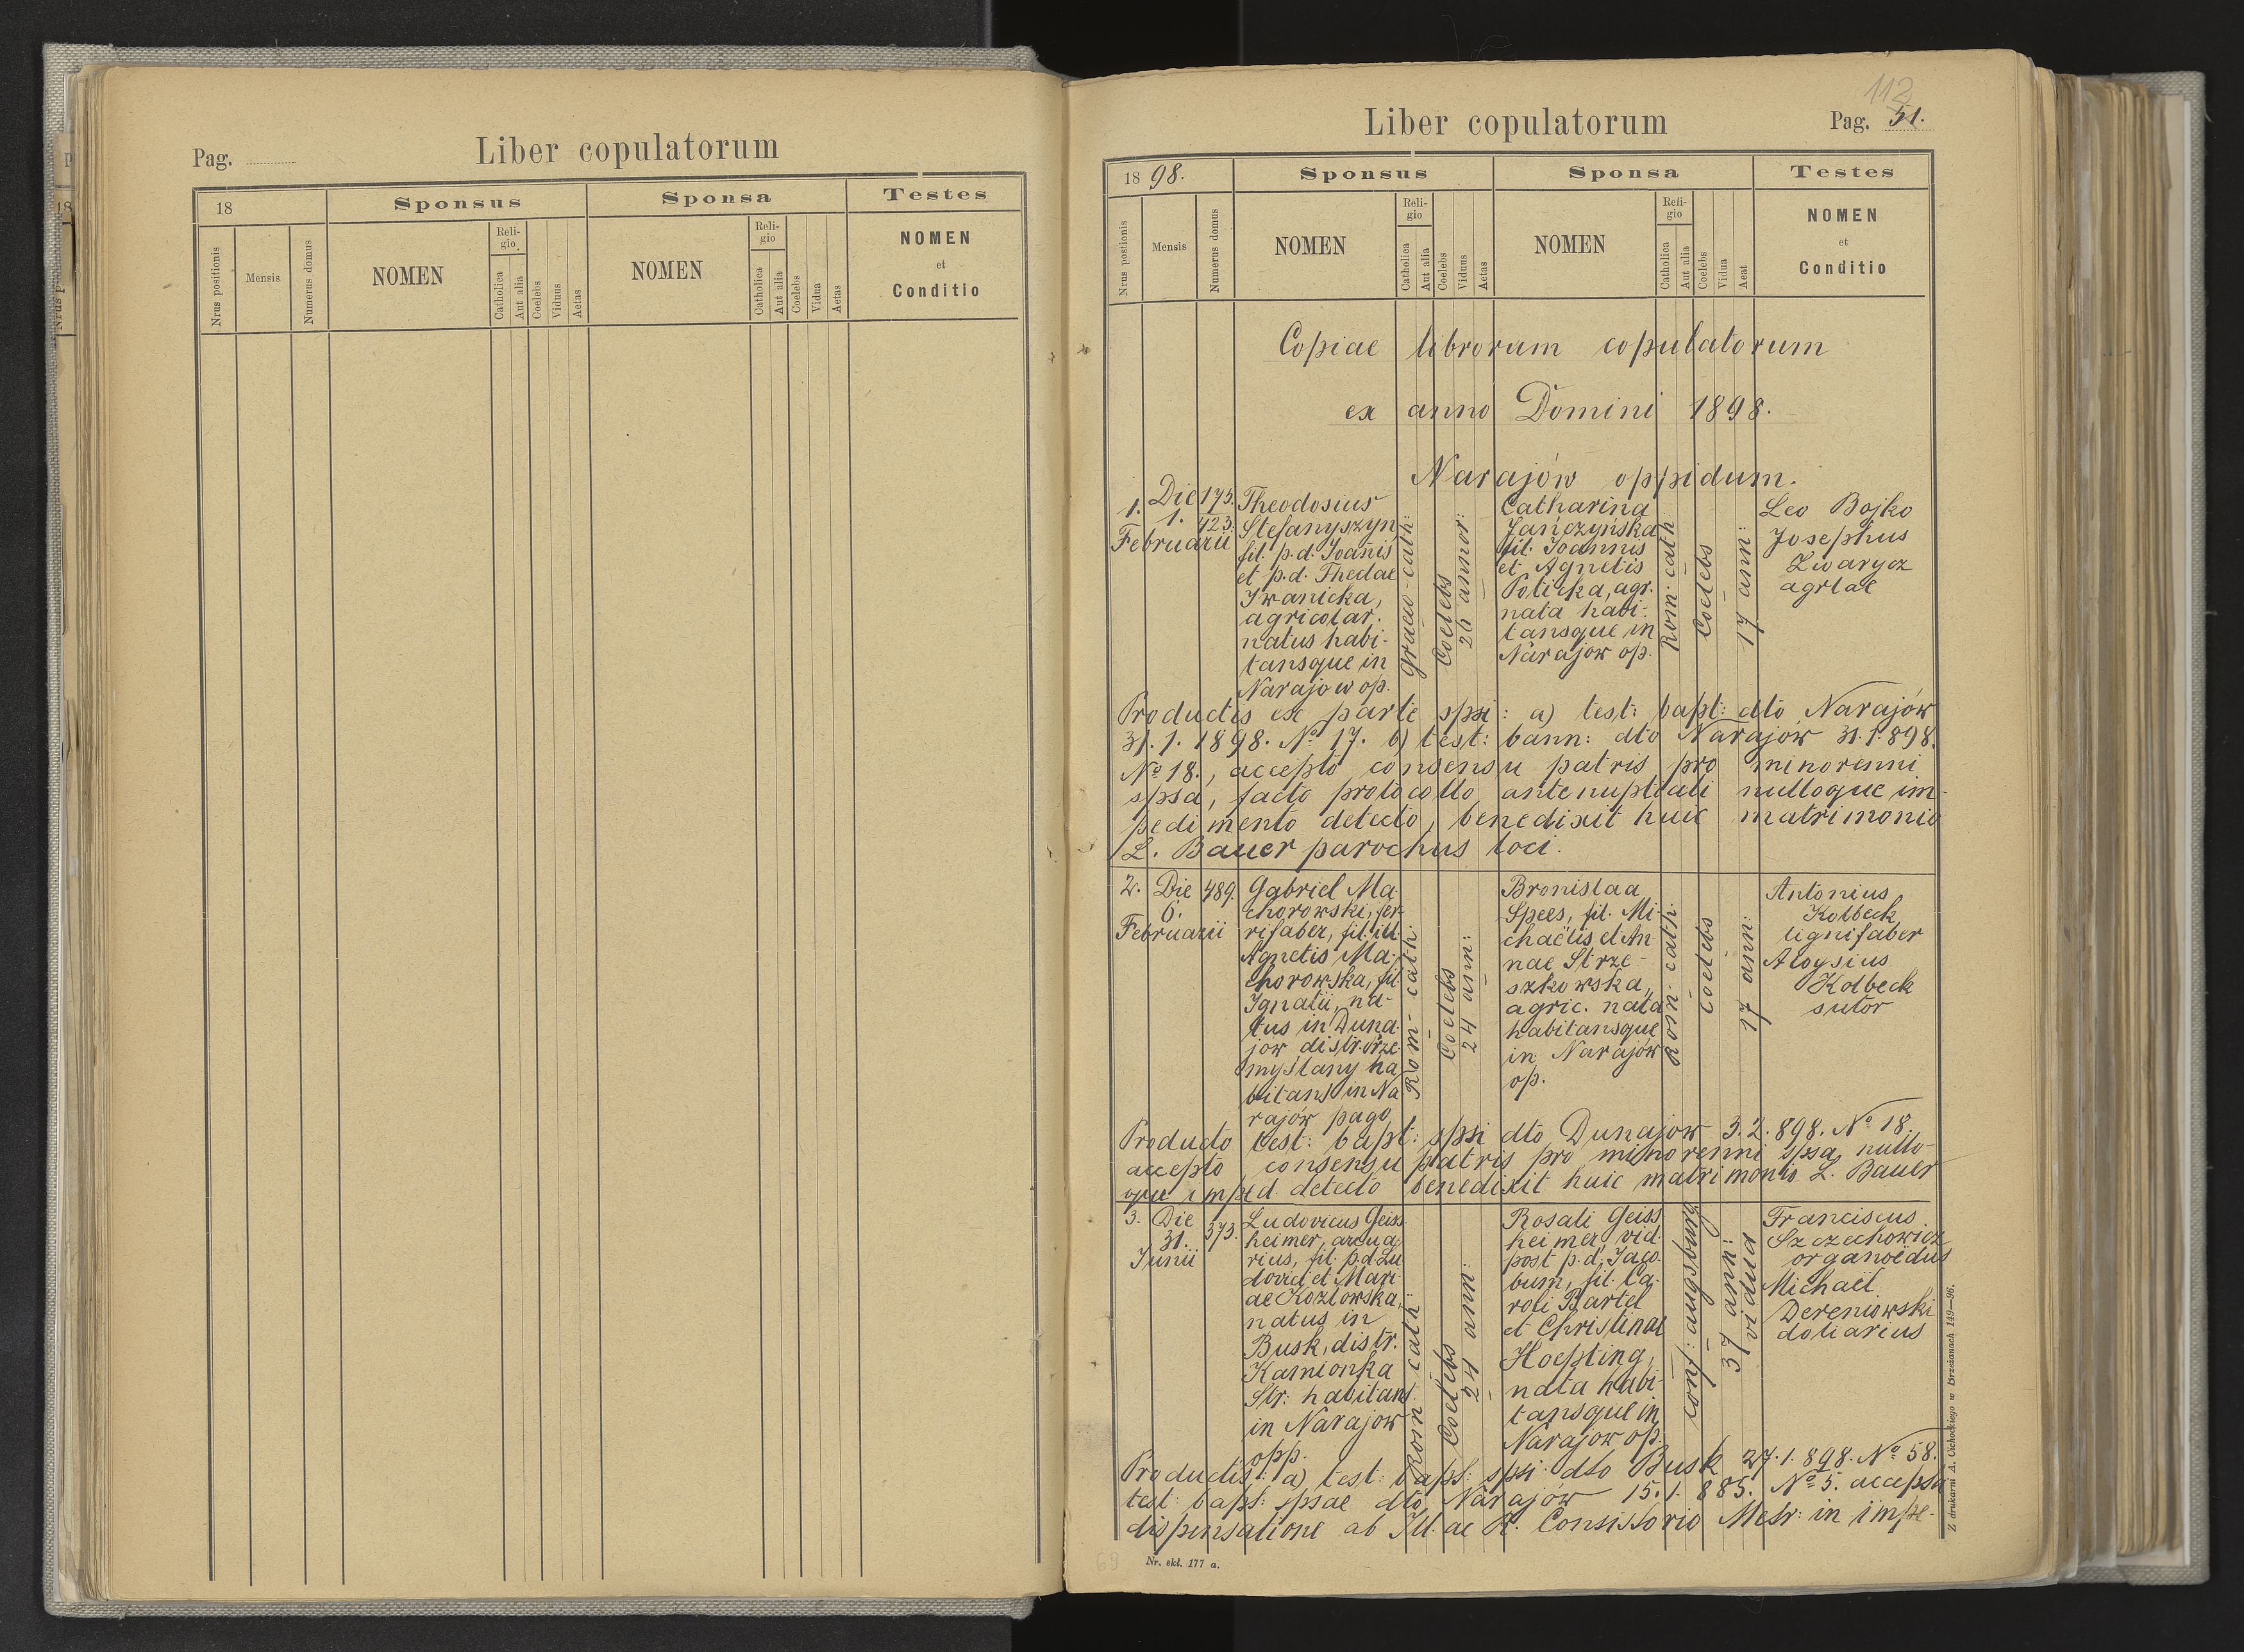 Pag.
Liber copulatorum
18
Sponsus
Sponsa
Testes
Nrus positionis
Mensis
Numerus domus
NOMEN
Reli-
gio
Catholica
Aut alia
Coelebs
Viduus
Aetas
NOMEN
Reli-
gio
Catholica
Aut alia
Coelebs
Vidua
Aetas
NOMEN
et
Conditio
112
Liber copulatorum
Pag. 51.
1898.
Sponsus
Sponsa
Testes
Nrus postionis
Mensis
Numerus domus
NOMEN
Reli-
gio
Catholica
Aut alia
Coelebs
Viduus
Aetas
NOMEN
Reli-
gio
Catholica
Aut alia
Coelebs
Vidua
Aeat
NOMEN
et
Conditio
Copiae librorum copulatorum
ex anno Domini 1898.
Narajów oppidum.
1.
Die
1.
Februarii
175.
423.
Theodosius
Stefanyszyn,
fil. p.d. Joanis
et p.d. Thedae
Iwanicka,
agricolar.
natus habi-
tansque in
Narajow op.
graeco-cath:
Coelebs
26 annor:
Catharina
Jańczyńska
fil. Joannis
et Agnetis
Policka, agr.
nata habi-
tansque in
Narajow op.
Rom: cath
Coelebs
17 ann:
Leo Bojko
Josephus
Zwarycz
agrlae
Productis ex parte spsi: a) test: bapt: dto Narajów
31.1.1898. No 17. b) test: bann: dto Narajów 31.1.898.
No 18., accepto consensu patris pro minorenni
spsa, facto protocollo antenuptiali nulloque im-
pedimento detecto, benedixit huic matrimonio
L. Bauer parochus loci.
2.
Die
6.
Februarii
489.
Gabriel Ma-
chorowski, fer-
rifaber, fil. ill
Agnetis Ma-
chorowska, fil
Ignatii, na-
tus in Duna-
jow distr. Prze-
myślany ha
bitans in Na
rajów pago
Rom- cath.
Coelebs
24 ann:
Bronislaa
Spees, fil. Mi-
chaëlis et An-
nae Strze-
szkowska,
agric. nata
habitansque
in Narajów
op.
Rom- cath:
Coelebs
17 ann:
Antonius
Kolbeck
lignifaber
Aloysius
Kolbeck
sutor
Producto test: bapt: spsi dto Dunajow 3.2.898. No 18.
accepto consensu patris pro minorenni spsa nullo-
que imped. detecto benedixit huic matrimonio L. Bauer
3.
Die
31.
Junii
373.
Ludovicus Geiss
heimer, arcua
rius, fil. p.d. Lu
dovici et Mari-
ae Kozłowska,
natus in
Busk, distr.
Kamionka
Str: habitans
in Narajow
opp.
Rom cath:
Coelebs
24 ann:
Rosali Geiss
heimer vid.
post p.d. Jaco-
bum, fil. Ca-
roli Bartel
et Christinae
Hoepting,
nata habi-
tansque in
Narajow op.
conf: augsburg
37 ann:
vidua
Franciscus
Szczechowicz
organoedus
Michaël
Dereniowski
doliarius
Productis: a) test: bapt: spsi dto Busk 27.1.898. No 58.
test: bapt: spsae dto Narajów 15.1.885. No 5. accepta
dispensatione ab Ill. ac R. Consistorio Metr: in impe-
Nr. skł. 177 a.
Z drukarni A. Cichockiego w Brzeżanach 149—96.
69